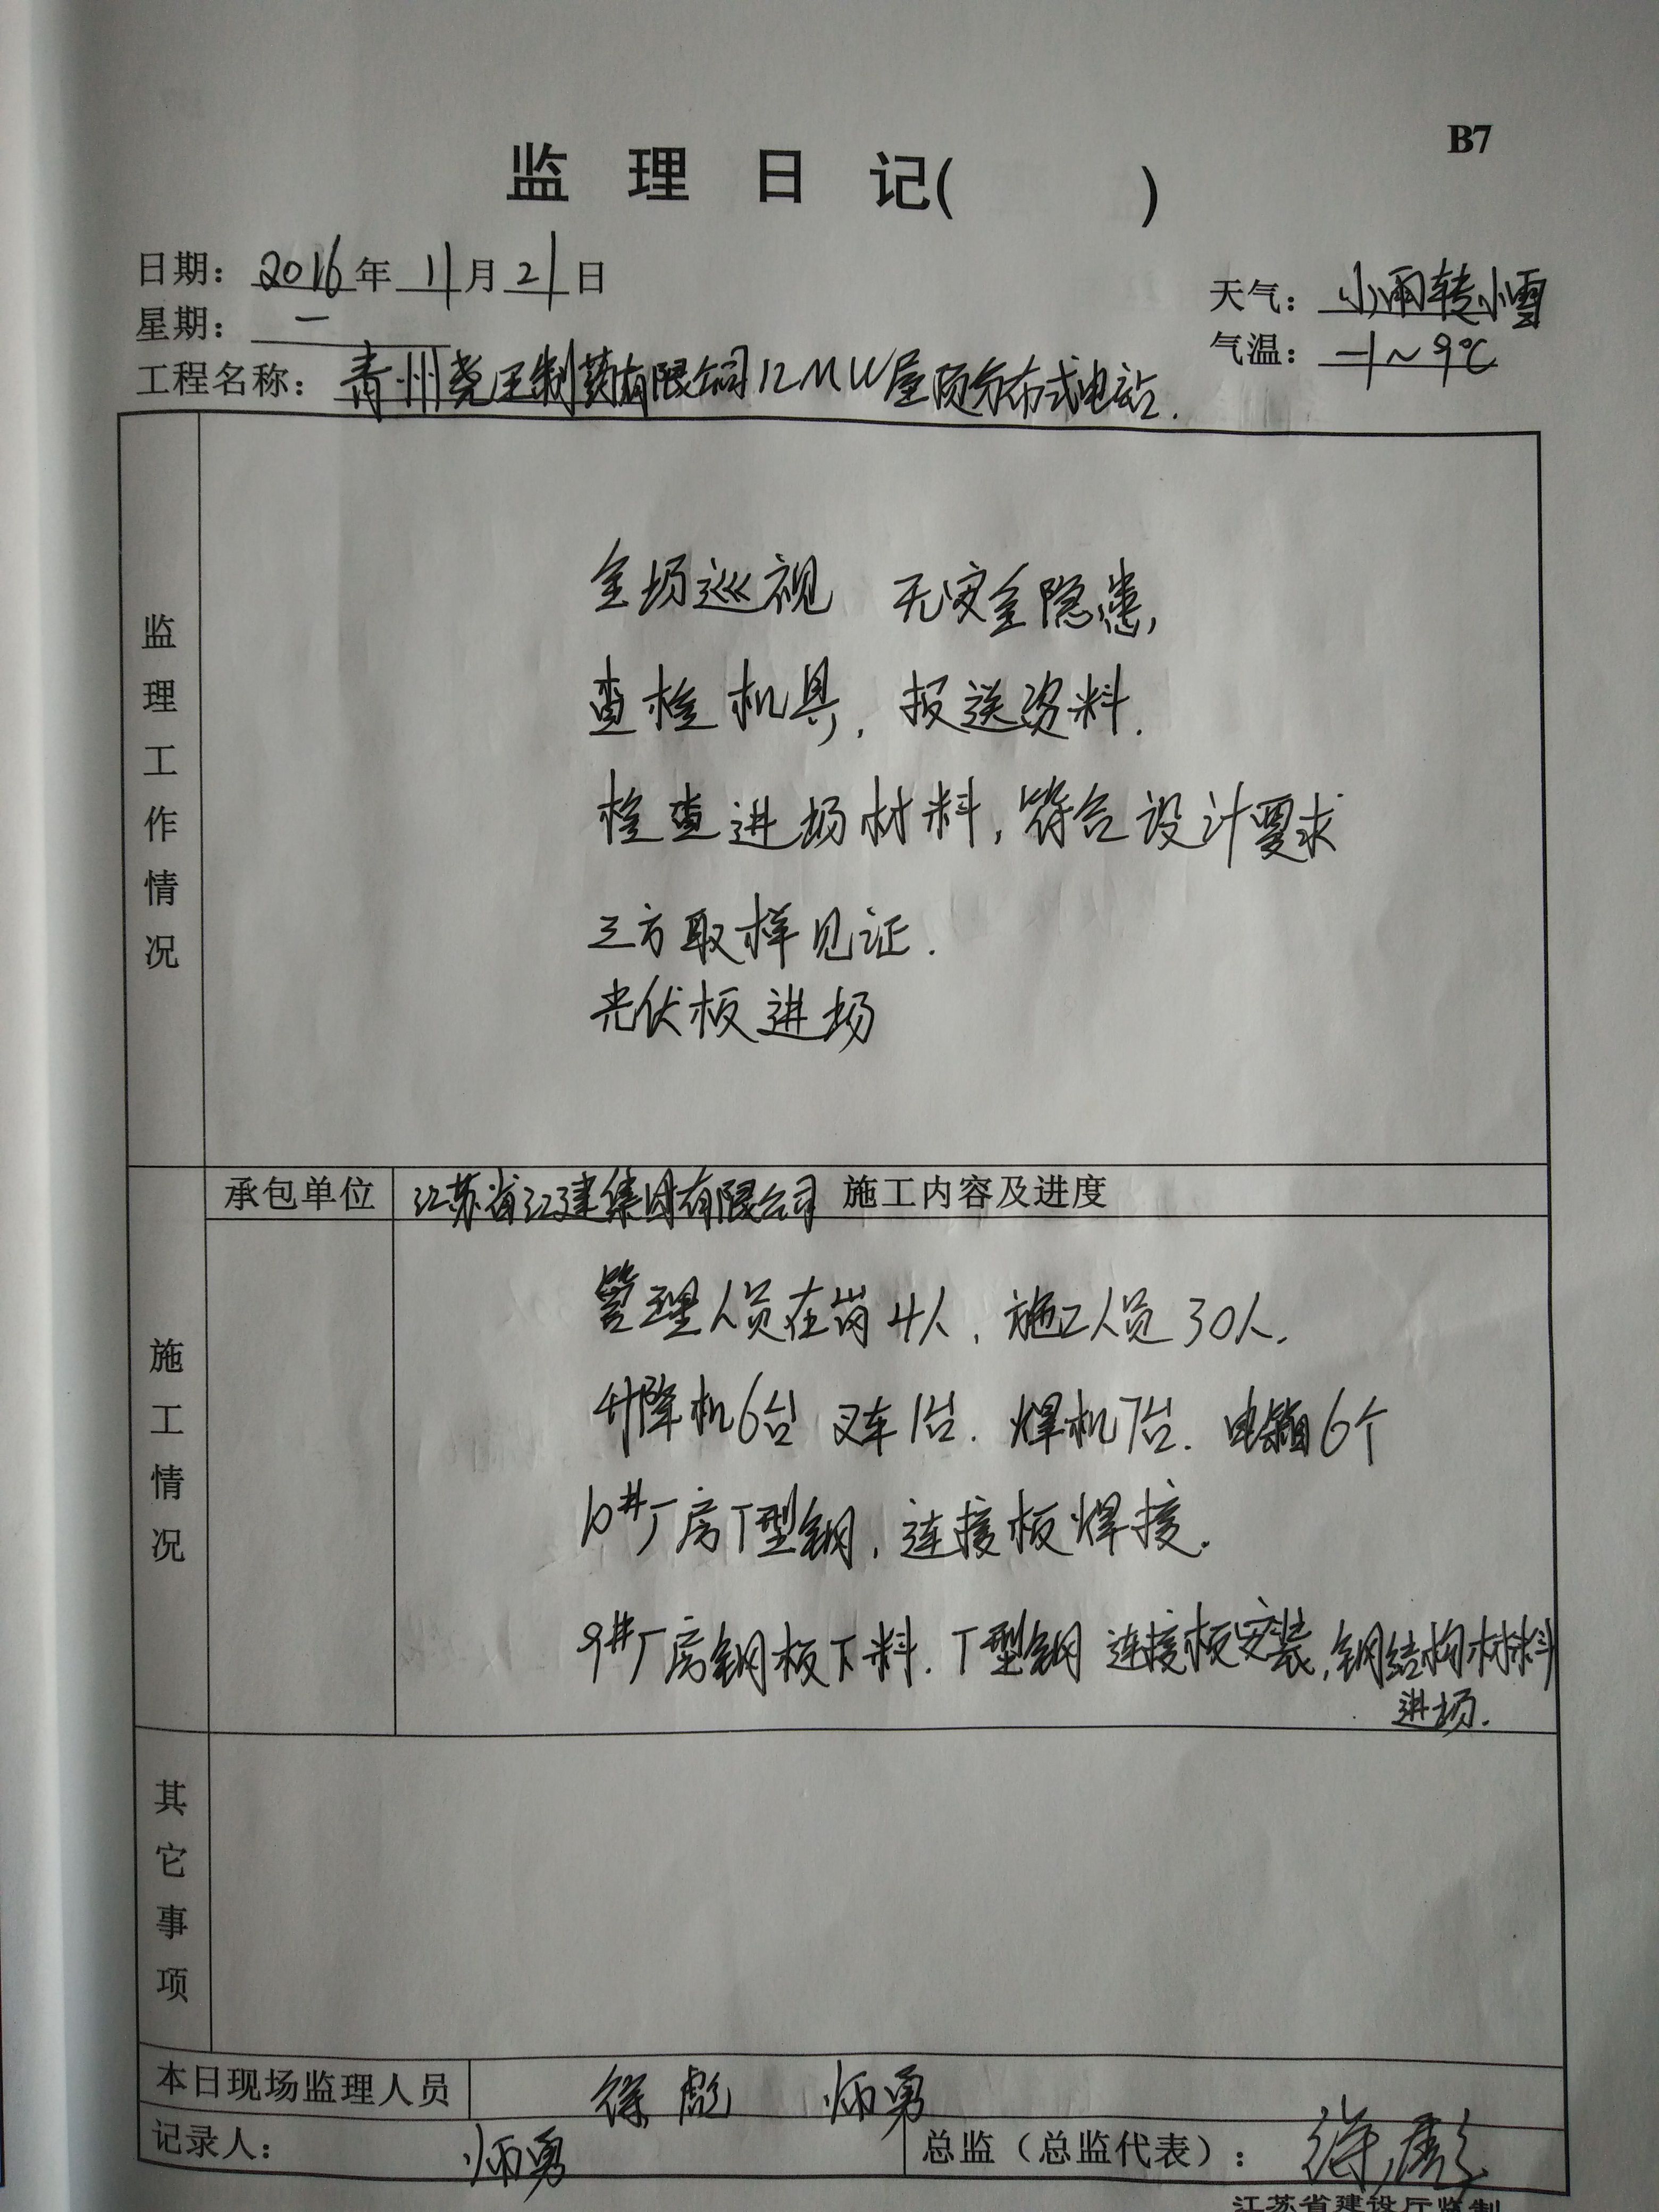 B7
监 理 日 记(          )
日期：2016年11月21日
天气：小雨转小雪
星期：一
气温：-1~9℃
工程名称：青州尧王制药有限公司12MW屋顶分布式电站.
监理工作情况
全场巡视 无安全隐患,
查检机具, 报送资料.
检查进场材料, 符合设计要求
三方取样见证.
光伏板进场
承包单位 江苏省江建集团有限公司 施工内容及进度
施工情况
管理人员在岗4人, 施工人员30人.
升降机6台 叉车1台. 焊机7台. 电箱6个
10#厂房T型钢, 连接板焊接.
9#厂房钢板下料. T型钢 连接板安装, 钢结构材料
进场.
其它事项
本日现场监理人员 徐彪 勇
记录人： 勇
总监（总监代表）：徐彪
江苏省建设厅监制